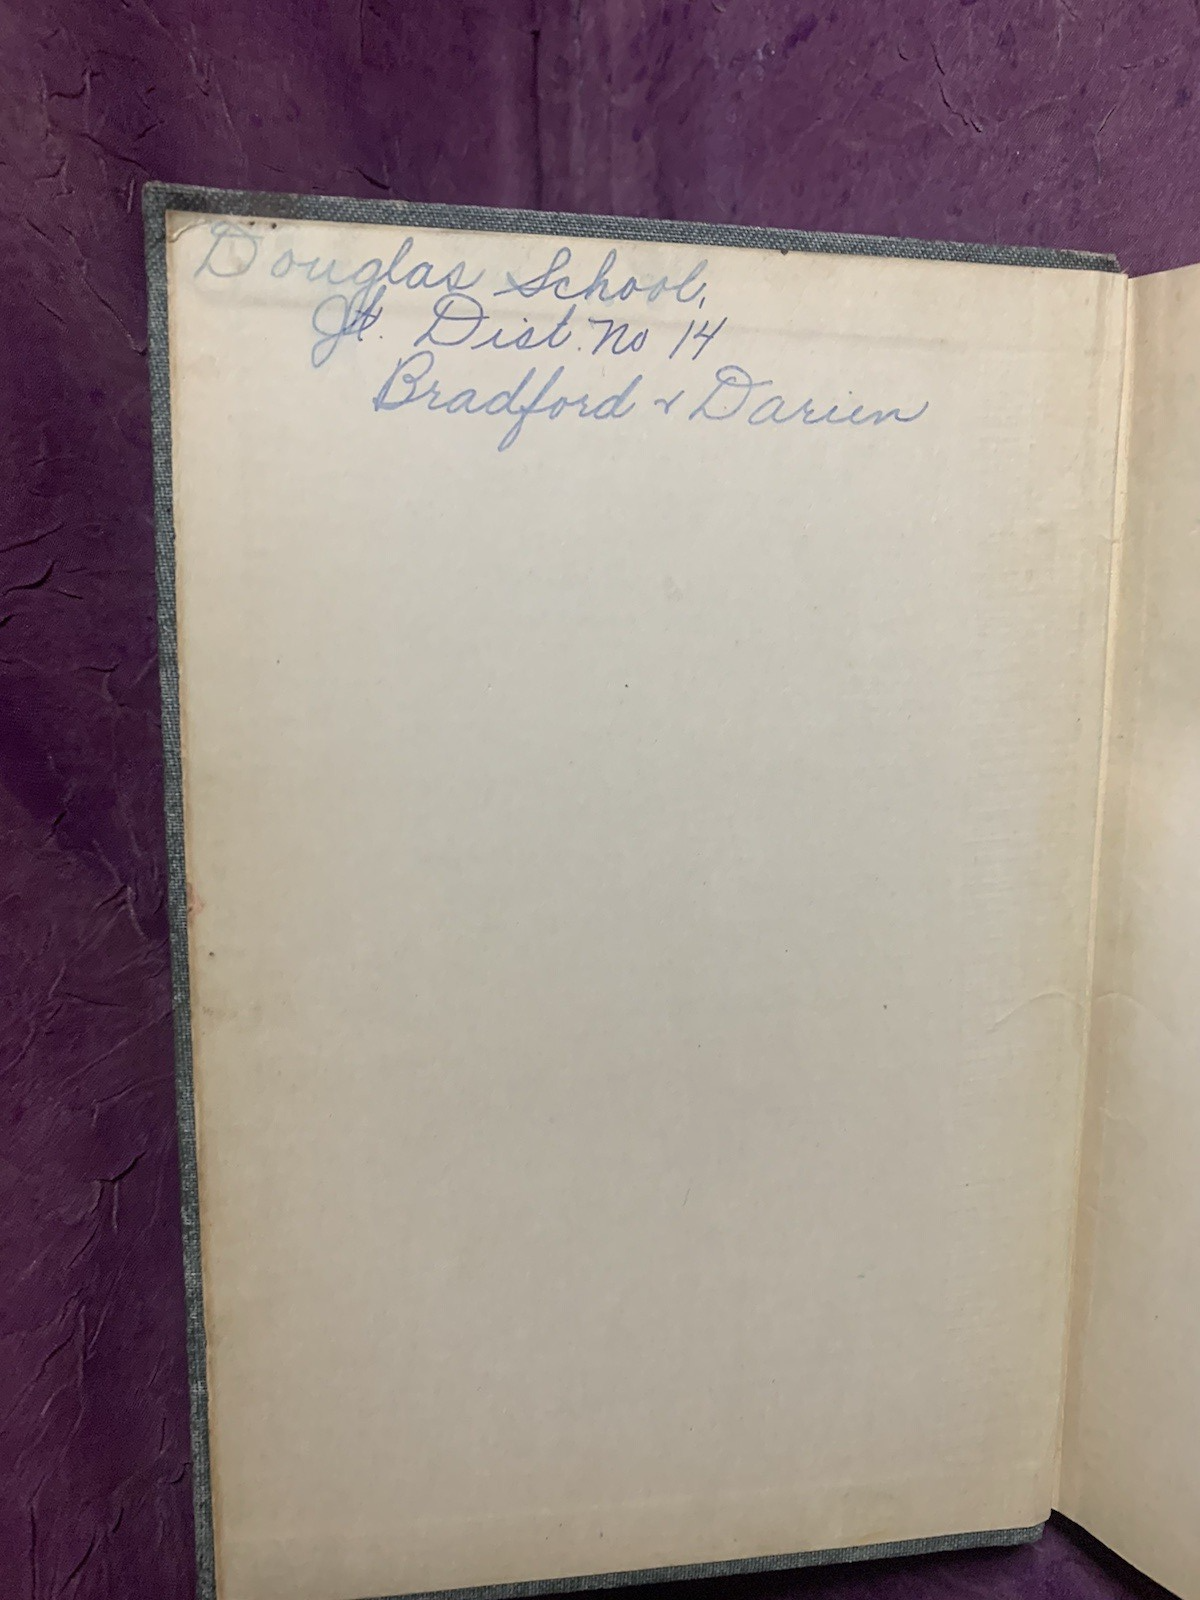 Douglas School,
Jt. Dist. No 14
Bradford & Darien